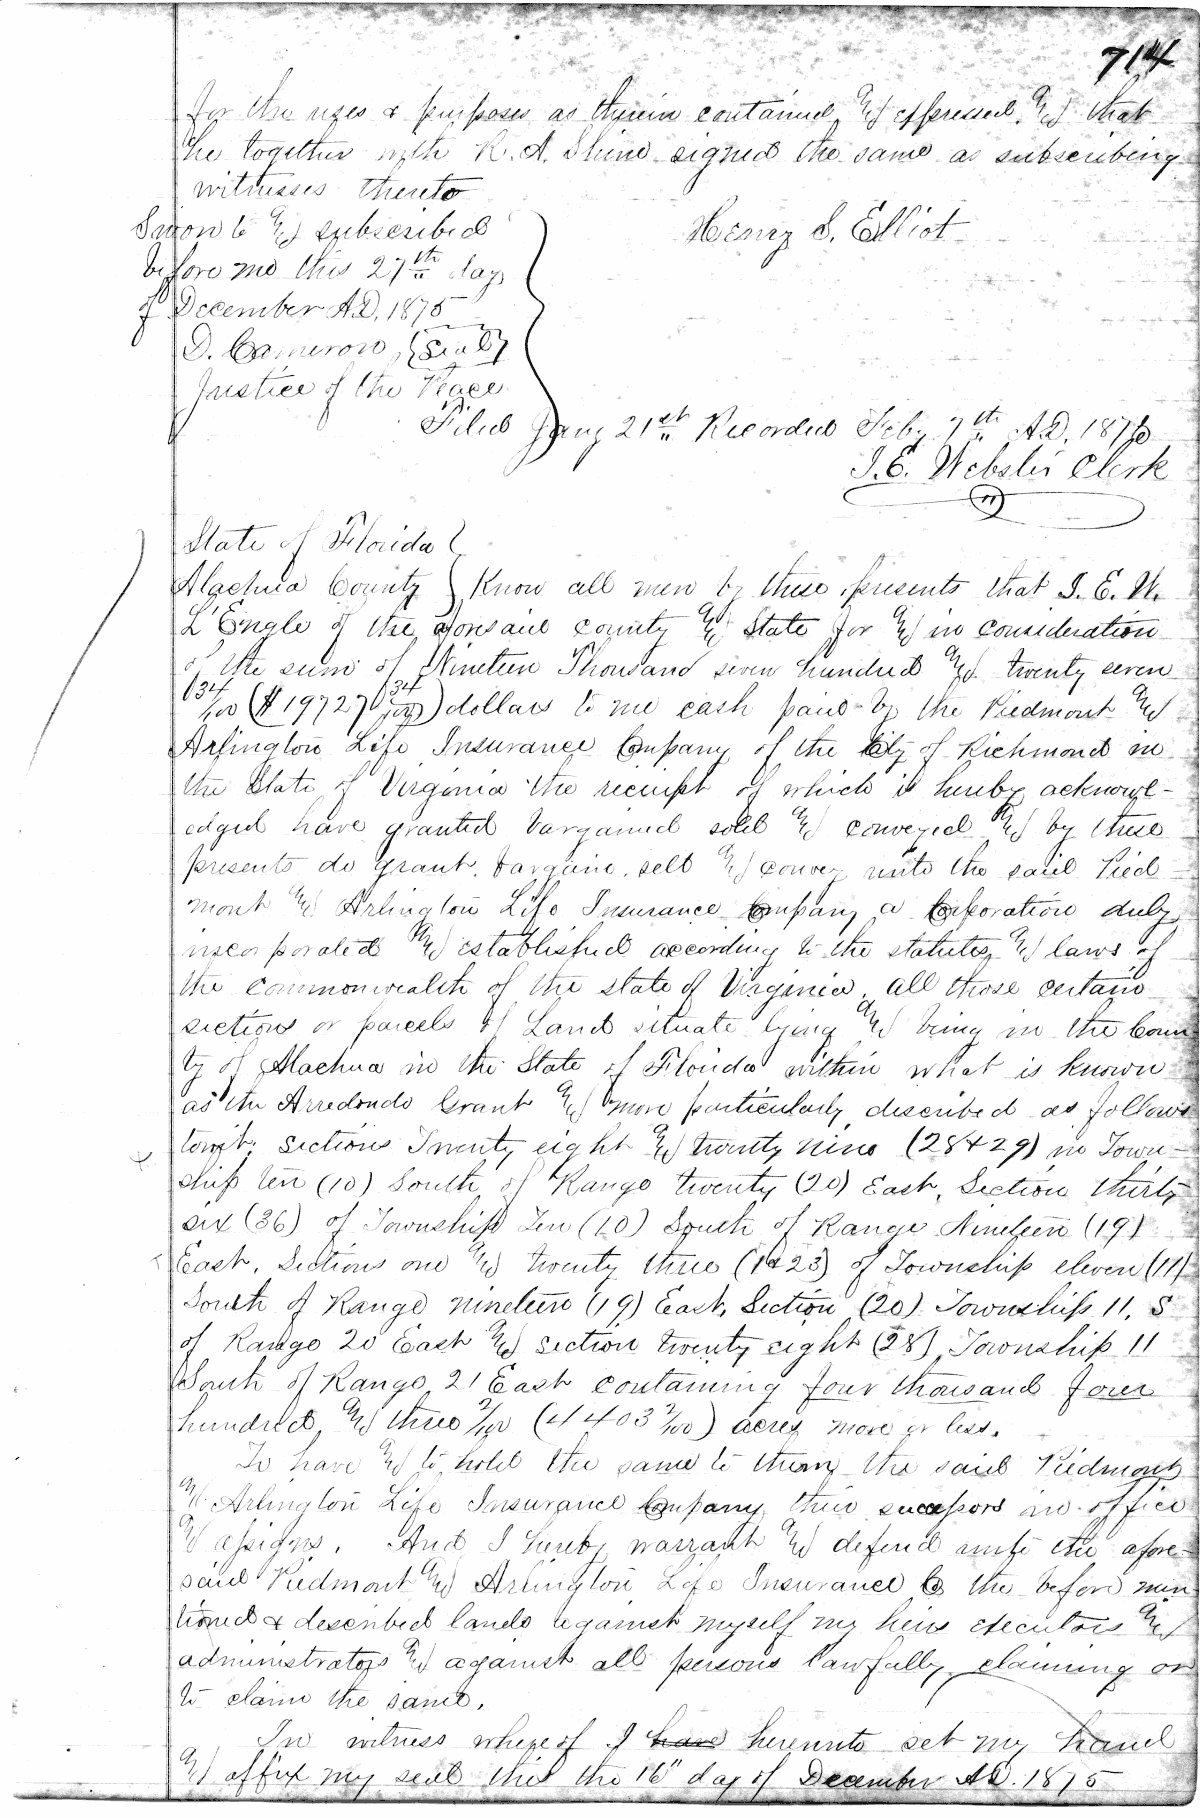 714
for the uses & purposes as therein contained and expressed, and that
he together with R. A. Shine signed the same as subscribing
witnesses thereto
Sworn to and subscribed
before me this 27th day
of December A.D. 1875
D. Cameron, {Seal}
Justice of the Peace
Henry S. Elliot
Filed Jany 21st Recorded Feby 7th A.D. 1876
J. E. Webster Clerk
State of Florida
Alachua County } Know all men by these presents that I. E. W.
L'Engle of the aforesaid county and State for and in consideration
of the sum of Nineteen Thousand seven hundred and twenty seven
34/100 ($19727 34/100) dollars to me cash paid by the Piedmont and
Arlington Life Insurance Company of the City of Richmond in
the State of Virginia the receipt of which is hereby acknowl-
edged have granted bargained sold and conveyed and by these
presents do grant, bargain, sell and convey unto the said Pied
mont and Arlington Life Insurance Company a Corporation duly
incorporated and established according to the statutes and laws of
the commonwealth of the state of Virginia, all those certain
sections or parcels of Land situate lying and being in the Coun
ty of Alachua in the State of Florida within what is known
as the Arredondo Grant and more particularly described as follows
towit: Sections Twenty eight and twenty nine (28 & 29) in Town-
ship ten (10) South of Range twenty (20) East, Section thirty
six (36) of Township Ten (10) South of Range Nineteen (19)
East, Sections one and twenty three (1 & 23) of Township eleven (11)
South of Range nineteen (19) East, Section (20) Township 11, S
of Range 20 East and section twenty eight (28) Township 11
South of Range 21 East containing four thousand four
hundred and three 2/100 (4403 2/100) acres more or less.
To have and to hold the same to them the said Piedmont
and Arlington Life Insurance Company their successors in office
and assigns. And I hereby warrant and defend unto the afore-
said Piedmont and Arlington Life Insurance Co the before men
tioned & described lands against myself my heirs executors and
administrators and against all persons lawfully claiming or
to claim the same.
In witness whereof I have hereunto set my hand
and affix my seal this the 16" day of December A.D. 1875